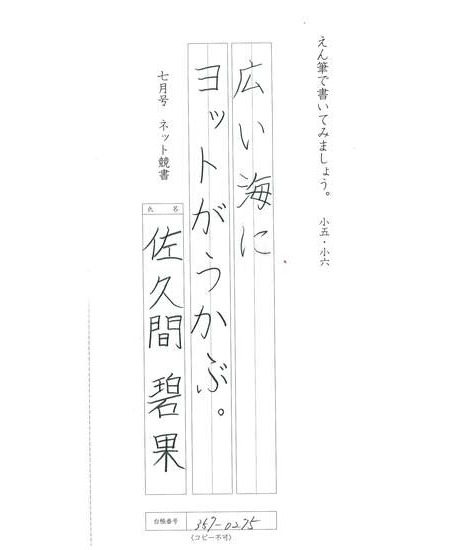 えん筆で書いてみましょう。 小五・小六
広い海に
ヨットがうかぶ。
七月号 ネット競書
氏名
佐久間 碧果
台帳番号 357-0275
(コピー不可)